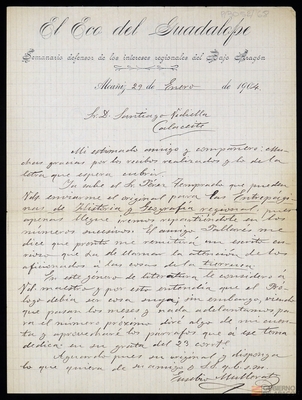 El Eco del Guadalope
Semanario defensor de los intereses regionales del Bajo Aragón
Alcañiz, 29 de Enero de 1904
Sr. D. Santiago Vidiella
Calaceite
Mi estimado amigo y compañero: Mu-
chas gracias por los recibos realizados y lo de la
letra que espera cubrir.
Ya sabe el Sr. Pérez Temprado que pueden
Vds. enviarme el original para las Entrepagi-
nas de Historia y Geografía regional, pues
apenas llegue iremos repartiéndole en los
números sucesivos. El amigo Taboada me
dice que pronto me remitirá un escrito
que ha de llamar la atención de los
aficionados a las cosas de la
En este género de literatura le considero a
Vd. maestro y por esto entendía que el Pró-
logo debía ser cosa suya; sin embargo, viendo
que pasan los meses y nada adelantamos pa-
ra el número próximo diré algo de mi cuen-
ta y aprovecharé los párrafos que a ese tema
dedica en su grata del 23 corrte.
Aguardo pues su original y disponga
lo que quiera de su amigo S. S. q. b. s. m.
Eusebio Mullerat